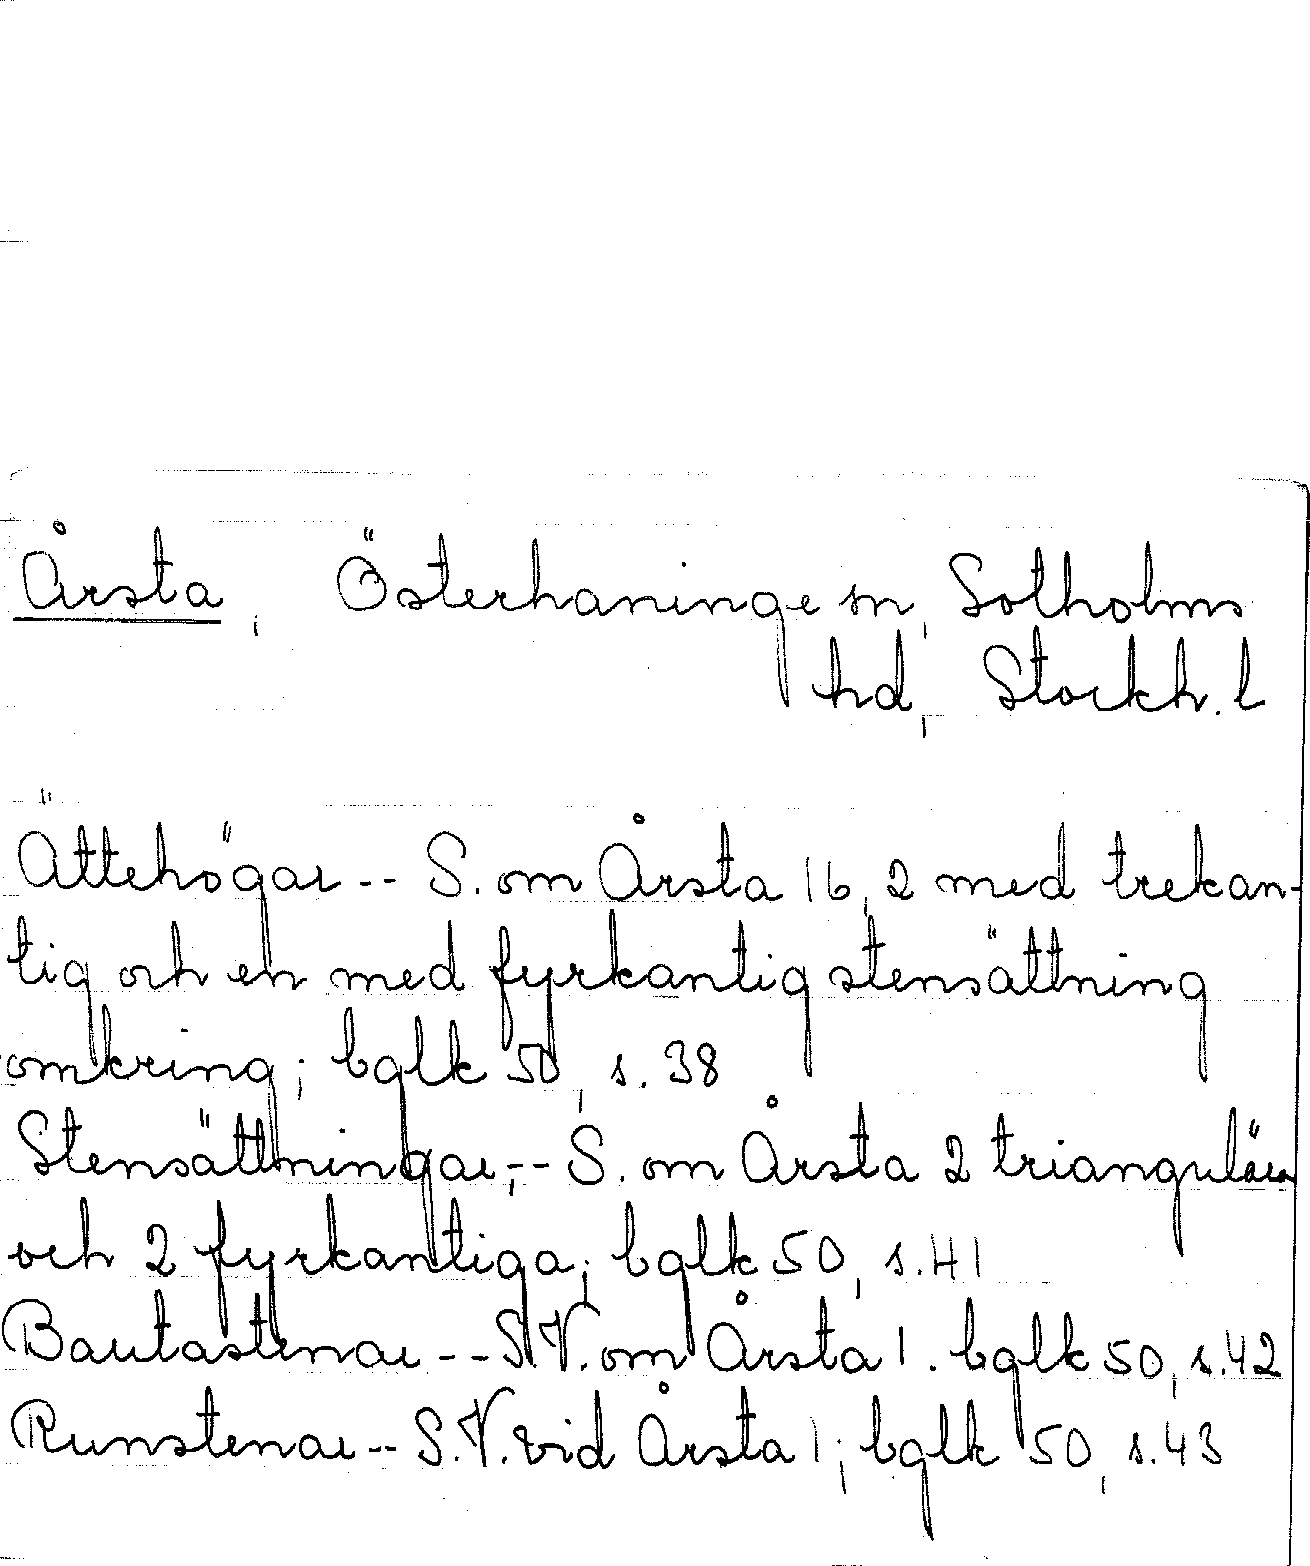 Årsta, Österhaninge sn, Sotholms
hd, Stockh. l
Ättehögar -- S. om Årsta 16, 2 med trekan-
tig och en med fyrkantig stensättning
omkring; bglk 50, s. 38
Stensättningar,-- S. om Årsta 2 triangulära
och 2 fyrkantiga; bglk 50, s. 41
Bautastenar -- S.V. om Årsta 1. bglk 50, s. 42
Runstenar -- S.V. vid Årsta 1; bglk 50, s. 43